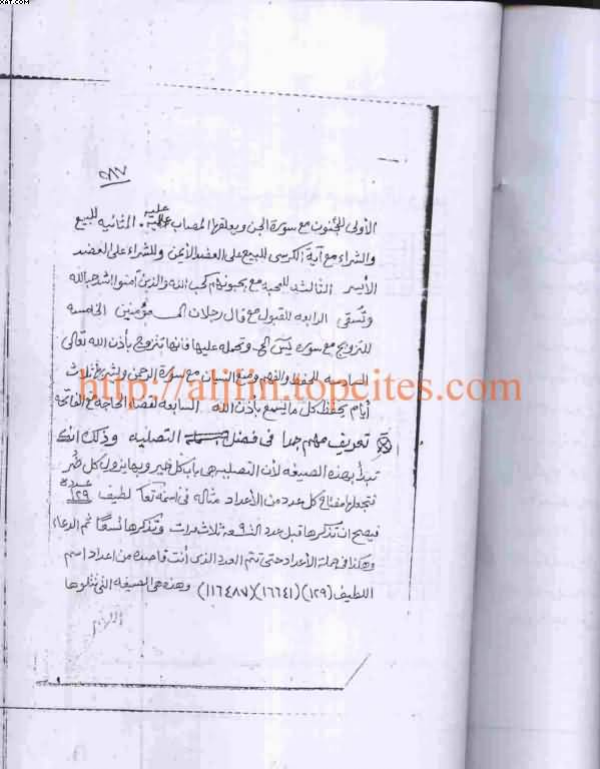 XAT.COM
٢٨٧
الأولى للجنون مع سورة الجن ويعلقها المصاب عليه. الثانيه للبيع
والشراء مع آية الكرسي للبيع على العضد الأيمن وللشراء على العضد
الأيسر الثالثه للمحبه مع يحبونهم كحب الله والذين آمنوا اشد حبا لله
وتسقى الرابعه للقبول مع قال رجلان الى مؤمنين الخامسه
للتزويج مع سوره يس الى وتحمله عليها فانها تتزوج بأذن الله تعالى
السادسه للحفظ والفهم ومنع النسيان مع سورة الرحمن وتشرب ثلاث
أيام يحفظ كل ما يسمع بأذن الله السابعه لقضاء الحاجه مع الفاتحه
http://aljiin.topcites.com
تعريف مهم جدا فى فضل التصليه وذلك انك
تبدأ بهذه الصيغه لأن التصليه هى باب كل خير وبها يزول كل ضر
فتجعلها مفتاح كل عدد من الأعداد مثاله فى اسمه تعا لطيف عدده ١٢٩
فيصح ان تذكرها قبل عدد التسعه ثلاث مرات وتذكرها تسعا ثم الدعاء
وهكذا فى جملة الأعداد حتى تتم العدد الذى أنت قاصده من اعداد اسم
اللطيف (١٢٩) (١٦٦٤١) (١١٦٤٨٧) وهذه هى الصيغه التى تتلوها